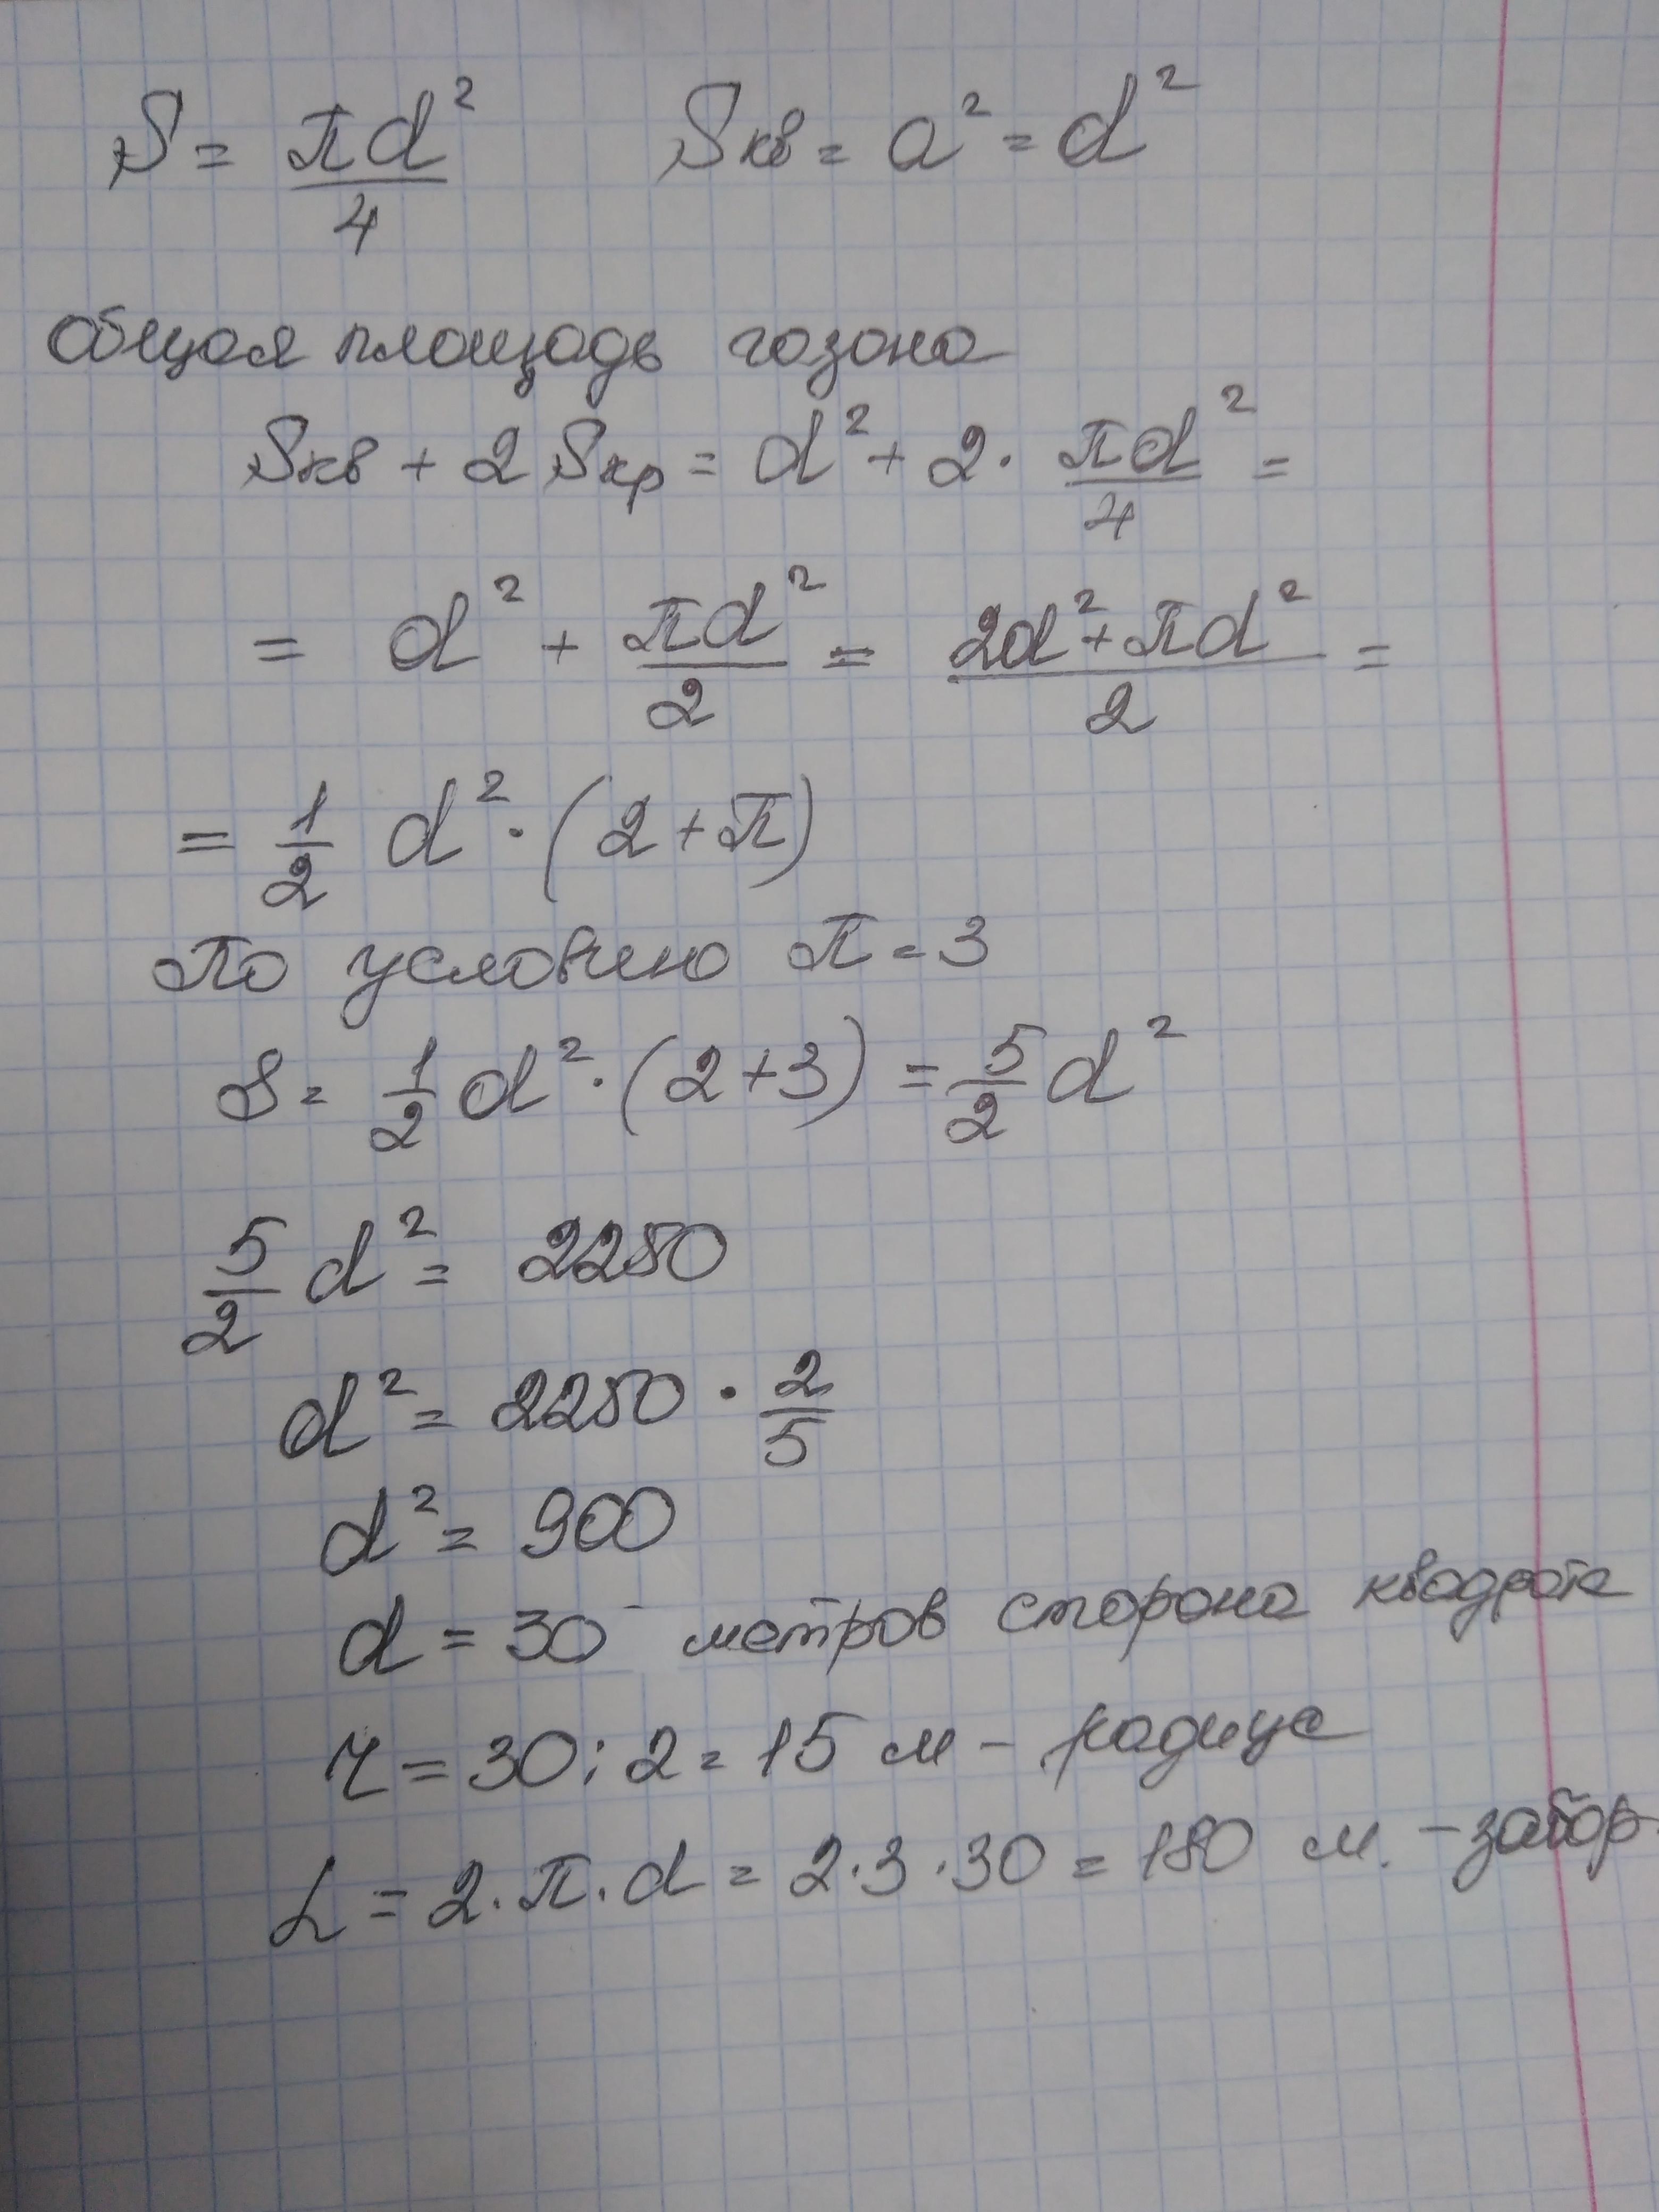 S = πd²/4 Sкв = a² = d²
общая площадь газона
Sкв + 2 Sкр = d² + 2 · πd²/4 =
= d² + πd²/2 = 2d² + πd²/2 =
= 1/2 d² · (2 + π)
По условию π = 3
S = 1/2 d² · (2 + 3) = 5/2 d²
5/2 d² = 2250
d² = 2250 · 2/5
d² = 900
d = 30 метров сторона квадрата
r = 30 : 2 = 15 м – радиус
L = 2 · π · d = 2 · 3 · 30 = 180 м. – забор